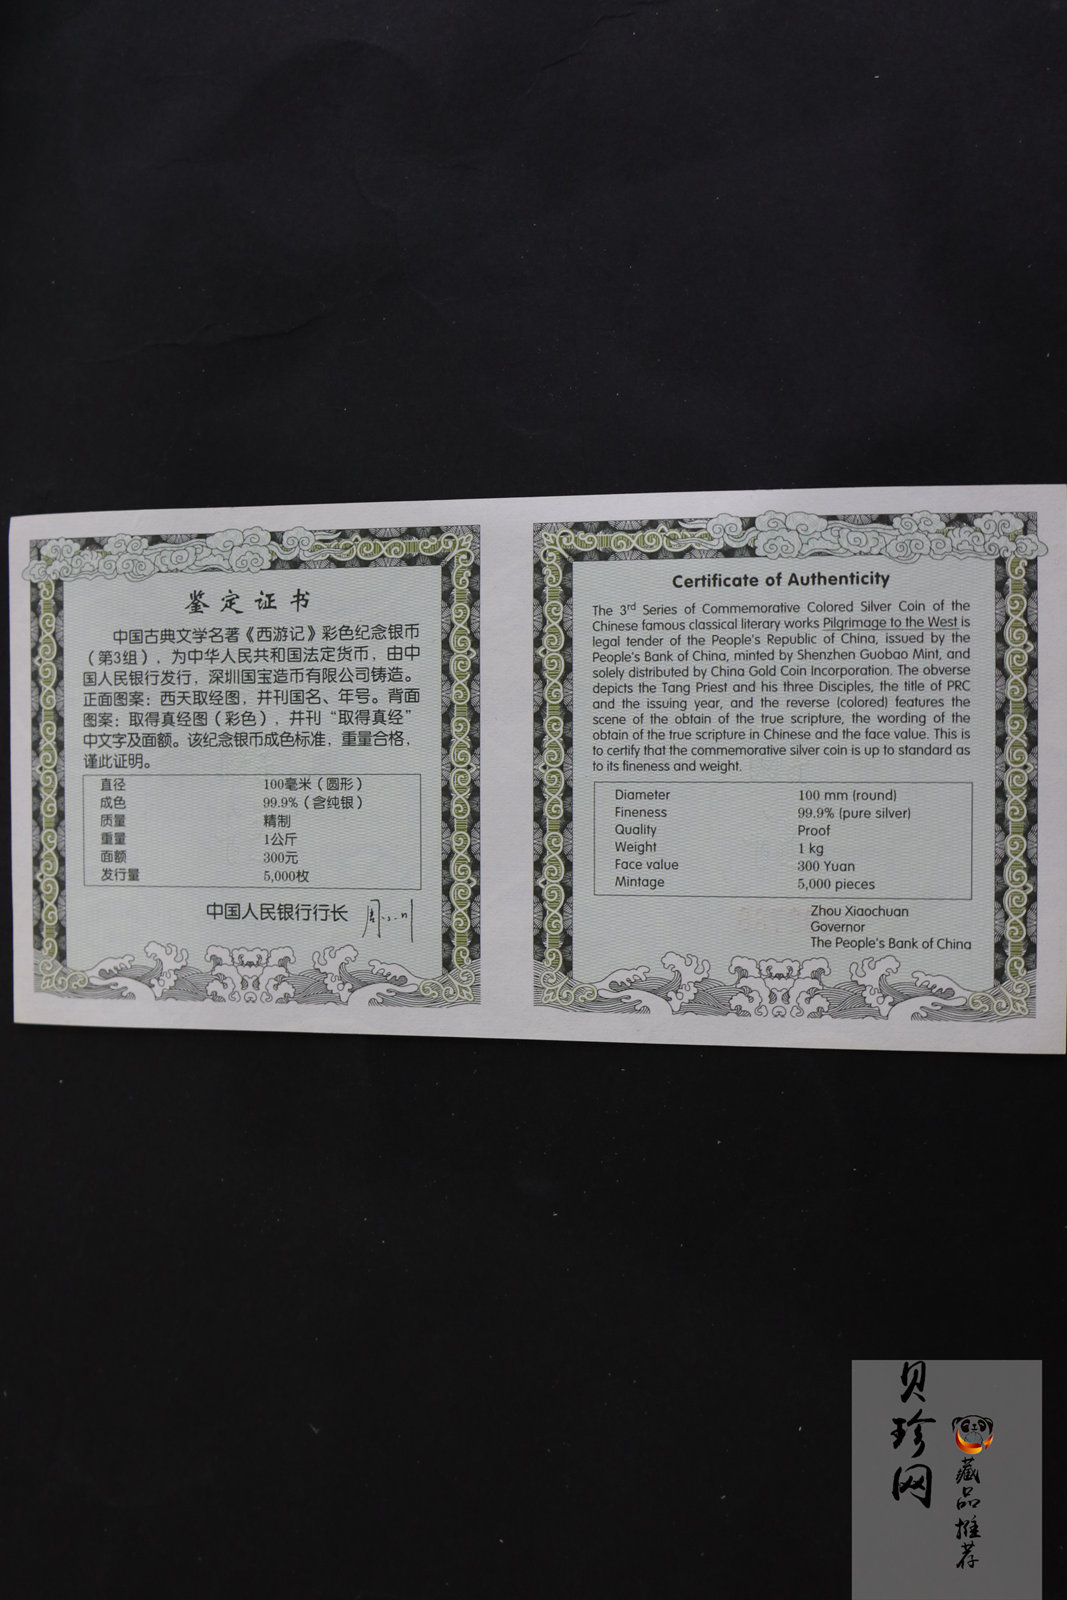 鉴定证书
中国古典文学名著《西游记》彩色纪念银币
（第3组），为中华人民共和国法定货币，由中
国人民银行发行，深圳国宝造币有限公司铸造。
正面图案：西天取经图，并刊国名、年号。背面
图案：取得真经图（彩色），并刊“取得真经”
中文字及面额。该纪念银币成色标准，重量合格，
谨此证明。
直径 100毫米（圆形）
成色 99.9%（含纯银）
质量 精制
重量 1公斤
面额 300元
发行量 5,000枚
中国人民银行行长
Certificate of Authenticity
The 3rd Series of Commemorative Colored Silver Coin of the
Chinese famous classical literary works Pilgrimage to the West is
legal tender of the People's Republic of China, issued by the
People's Bank of China, minted by Shenzhen Guobao Mint, and
solely distributed by China Gold Coin Incorporation. The obverse
depicts the Tang Priest and his three Disciples, the title of PRC
and the issuing year, and the reverse (colored) features the
scene of the obtain of the true scripture, the wording of the
obtain of the true scripture in Chinese and the face value. This is
to certify that the commemorative silver coin is up to standard as
to its fineness and weight.
Diameter 100 mm (round)
Fineness 99.9% (pure silver)
Quality Proof
Weight 1 kg
Face value 300 Yuan
Mintage 5,000 pieces
Zhou Xiaochuan
Governor
The People's Bank of China
贝珍网
藏品推荐